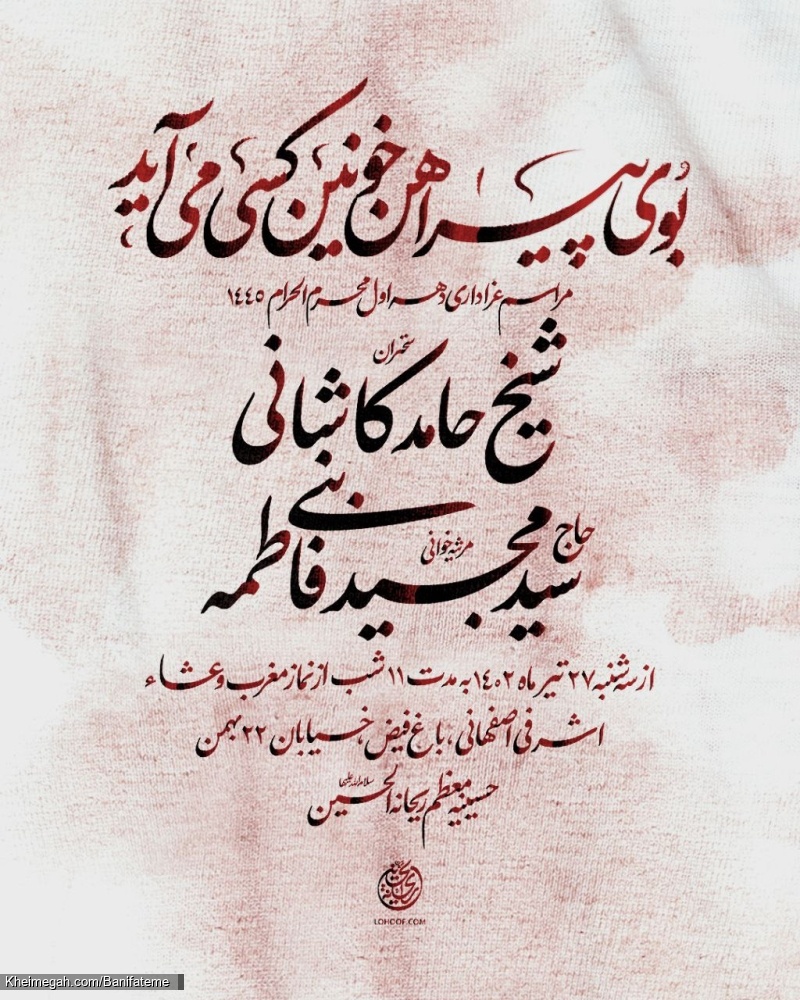 بوی پیراهن خونین کسی می آید
مراسم عزاداری دهه اول محرم الحرام ۱٤٤٥
سخنران
شیخ حامد کاشانی
حاج سید مجید بنی فاطمه
مرثیه خوانی
از سه شنبه ۲۷ تیر ماه ۱٤۰۲ به مدت ۱۱ شب از نماز مغرب و عشاء
اشرفی اصفهانی، باغ فیض، خیابان ۲۲ بهمن
حسینیه معظم ریحانه الحسین سلام الله علیها
LOHOOF.COM
Kheimegah.com/Banifateme